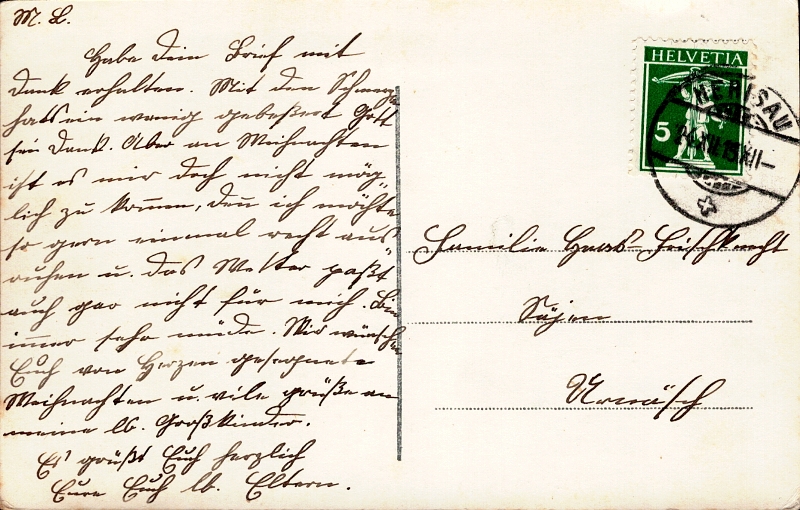 M. L.
Habe Dein Brief mit
Dank erhalten. Mit den Schmerz
hats ein wenig gebeßert Gott
sei Dank. Aber an Weihnachten
ist es mir doch nicht mög
lich zu kommen, den ich möchte
so gern einmal recht aus
ruhen u. das Wetter paßt
auch gar nicht für mich. Bin
immer sehr müde. Wir wünschen
Euch von Herzen gesegnete
Weihnachten u. vile grüße an
meine lb. Großkinder.
Es grüßt Euch herzlich
Eure Euch lb. Eltern.
HELVETIA
5
HERISAU
Familie
Urnäsch